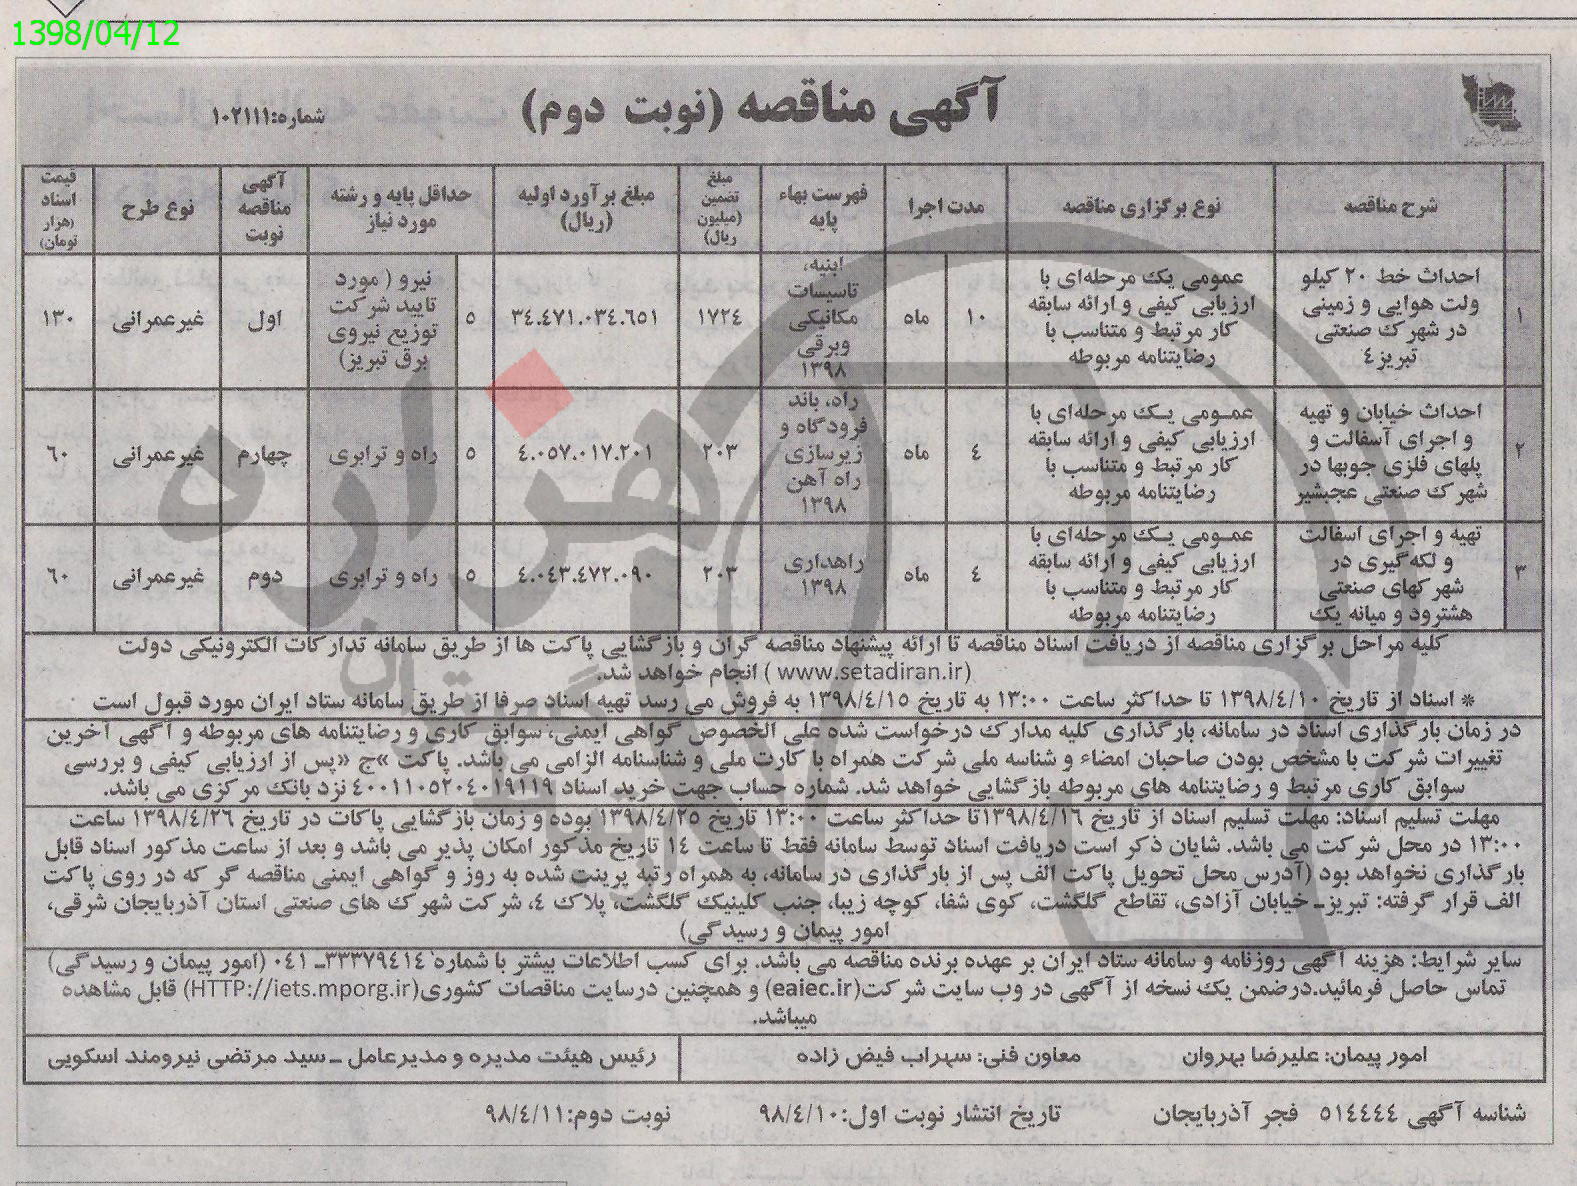 1398/04/12
آگهی مناقصه (نوبت دوم)
شماره:۱۰۲۱۱۱
شرح مناقصه
نوع برگزاری مناقصه
مدت اجرا
فهرست بهاء
پایه
مبلغ
تضمین
(میلیون
ریال)
مبلغ برآورد اولیه
(ریال)
حداقل پایه و رشته
مورد نیاز
آگهی
مناقصه
نوبت
نوع طرح
قیمت
اسناد
(هزار
تومان)
۱
احداث خط ۲۰ کیلو
ولت هوایی و زمینی
در شهرک صنعتی
تبریز ٤
عمومی یک مرحله‌ای با
ارزیابی کیفی و ارائه سابقه
کار مرتبط و متناسب با
رضایتنامه مربوطه
۱۰
ماه
ابنیه،
تاسیسات
مکانیکی
وبرقی
۱۳۹۸
۱۷۲٤
۳٤.٤۷۱.۰۳٤.٦۵۱
۵
نیرو ( مورد
تایید شرکت
توزیع نیروی
برق تبریز)
اول
غیرعمرانی
۱۳۰
۲
احداث خیابان و تهیه
و اجرای آسفالت و
پلهای فلزی جوبها در
شهرک صنعتی عجبشیر
عمومی یک مرحله‌ای با
ارزیابی کیفی و ارائه سابقه
کار مرتبط و متناسب با
رضایتنامه مربوطه
٤
ماه
راه، باند
فرودگاه و
زیرسازی
راه آهن
۱۳۹۸
۲۰۳
٤.۰۵۷.۰۱۷.۲۰۱
۵
راه و ترابری
چهارم
غیرعمرانی
٦۰
۳
تهیه و اجرای اسفالت
و لکه گیری در
شهرکهای صنعتی
هشترود و میانه یک
عمومی یک مرحله‌ای با
ارزیابی کیفی و ارائه سابقه
کار مرتبط و متناسب با
رضایتنامه مربوطه
٤
ماه
راهداری
۱۳۹۸
۲۰۳
٤.۰٤۳.٤۷۲.۰۹۰
۵
راه و ترابری
دوم
غیرعمرانی
٦۰
کلیه مراحل برگزاری مناقصه از دریافت اسناد مناقصه تا ارائه پیشنهاد مناقصه گران و بازگشایی پاکت ها از طریق سامانه تدارکات الکترونیکی دولت
(www.setadiran.ir ) انجام خواهد شد.
* اسناد از تاریخ ۱۳۹۸/٤/۱۰ تا حداکثر ساعت ۱۳:۰۰ به تاریخ ۱۳۹۸/٤/۱۵ به فروش می رسد تهیه اسناد صرفا از طریق سامانه ستاد ایران مورد قبول است
در زمان بارگذاری اسناد در سامانه، بارگذاری کلیه مدارک درخواست شده علی الخصوص گواهی ایمنی، سوابق کاری و رضایتنامه های مربوطه و آگهی آخرین
تغییرات شرکت با مشخص بودن صاحبان امضاء و شناسه ملی شرکت همراه با کارت ملی و شناسنامه الزامی می باشد. پاکت »ج «پس از ارزیابی کیفی و بررسی
سوابق کاری مرتبط و رضایتنامه های مربوطه بازگشایی خواهد شد. شماره حساب جهت خرید اسناد ٤۰۰۱۱۰۵۲۰٤۰۱۹۱۱۹ نزد بانک مرکزی می باشد.
مهلت تسلیم اسناد: مهلت تسلیم اسناد از تاریخ ۱۳۹۸/٤/۱٦تا حداکثر ساعت ۱۳:۰۰ تاریخ ۱۳۹۸/٤/۲۵ بوده و زمان بازگشایی پاکات در تاریخ ۱۳۹۸/٤/۲٦ ساعت
۱۳:۰۰ در محل شرکت می باشد. شایان ذکر است دریافت اسناد توسط سامانه فقط تا ساعت ۱٤ تاریخ مذکور امکان پذیر می باشد و بعد از ساعت مذکور اسناد قابل
بارگذاری نخواهد بود (آدرس محل تحویل پاکت الف پس از بارگذاری در سامانه، به همراه رتبه پرینت شده به روز و گواهی ایمنی مناقصه گر که در روی پاکت
الف قرار گرفته: تبریزـ خیابان آزادی، تقاطع گلگشت، کوی شفا، کوچه زیبا، جنب کلینیک گلگشت، پلاک ٤، شرکت شهرک های صنعتی استان آذربایجان شرقی،
امور پیمان و رسیدگی)
سایر شرایط: هزینه آگهی روزنامه و سامانه ستاد ایران بر عهده برنده مناقصه می باشد. برای کسب اطلاعات بیشتر با شماره ۳۳۳۷۹٤۱٤ـ ۰٤۱ (امور پیمان و رسیدگی)
تماس حاصل فرمائید.درضمن یک نسخه از آگهی در وب سایت شرکت(eaiec.ir) و همچنین درسایت مناقصات کشوری(HTTP://iets.mporg.ir) قابل مشاهده
میباشد.
امور پیمان: علیرضا بهروان
معاون فنی: سهراب فیض زاده
رئیس هیئت مدیره و مدیرعامل ـ سید مرتضی نیرومند اسکویی
شناسه آگهی ۵۱٤٤٤٤ فجر آذربایجان
تاریخ انتشار نوبت اول:۹۸/٤/۱۰
نوبت دوم:۹۸/٤/۱۱
هزاره